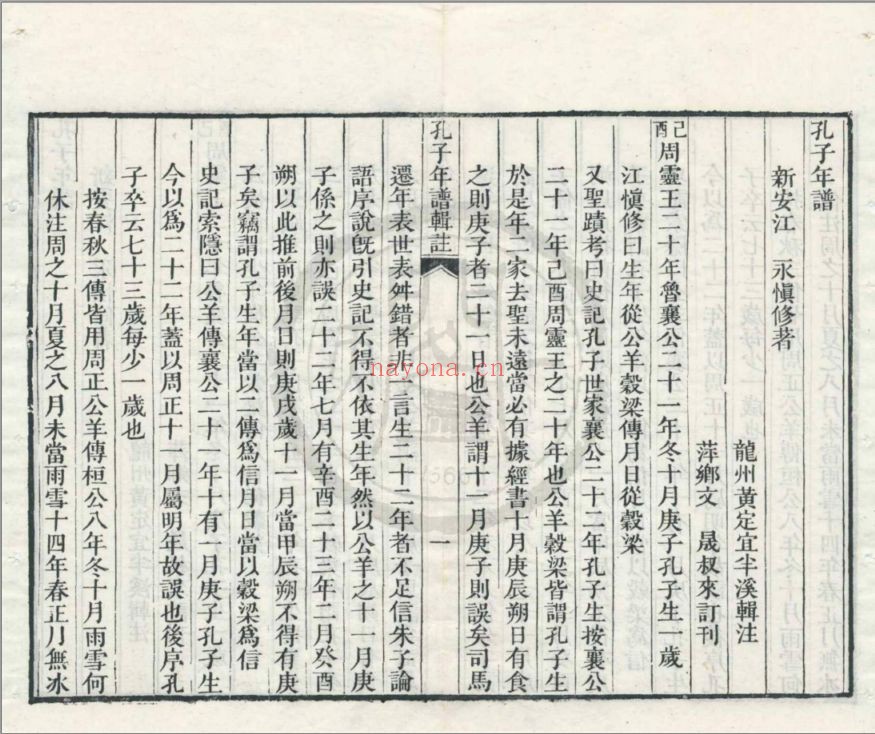 孔子年譜
新安江　永愼修著
龍州黃定宜半溪輯注
萍鄕文　晟叔來訂刊
己酉周靈王二十年魯襄公二十一年冬十月庚子孔子生一歲
江愼修曰生年從公羊穀梁傳月日從穀梁
又聖蹟考曰史記孔子世家襄公二十二年孔子生按襄公
二十一年己酉周靈王之二十年也公羊穀梁皆謂孔子生
於是年二家去聖未遠當必有據經書十月庚辰朔日有食
之則庚子者二十一日也公羊謂十一月庚子則誤矣司馬
孔子年譜輯註
一
遷年表世表舛錯者非一言生二十二年者不足信朱子論
語序說旣引史記不得不依其生年然以公羊之十一月庚
子係之則亦誤二十二年七月有辛酉二十三年二月癸酉
朔以此推前後月日則庚戌歲十一月當甲辰朔不得有庚
子矣竊謂孔子生年當以二傳爲信月日當以穀梁爲信
史記索隱曰公羊傳襄公二十一年十有一月庚子孔子生
今以爲二十二年蓋以周正十一月屬明年故誤也後序孔
子卒云七十三歲每少一歲也
按春秋三傳皆用周正公羊傳桓公八年冬十月雨雪何
休注周之十月夏之八月未當雨雪十四年春正月無冰
nayona.cn